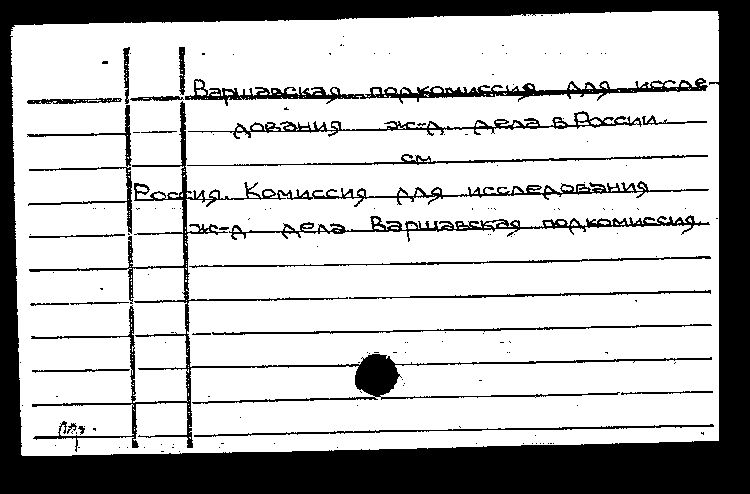 Варшавская подкомиссия для иссле-
дования ж-д. дела в России.
см.
Россия. Комиссия для исследования
ж-д дела. Варшавская подкомиссия.